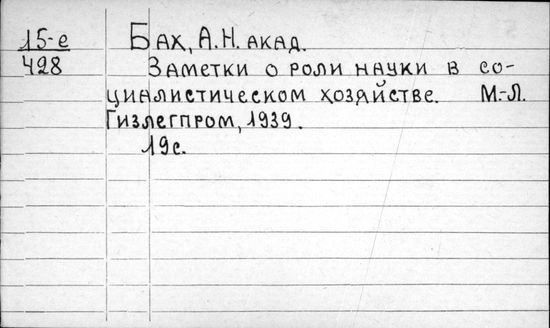 15-е
428
Бах, А.Н. акад.
Заметки о роли науки в со-
циалистическом хозяйстве. М.-Л.
Гизлегпром, 1939.
19с.